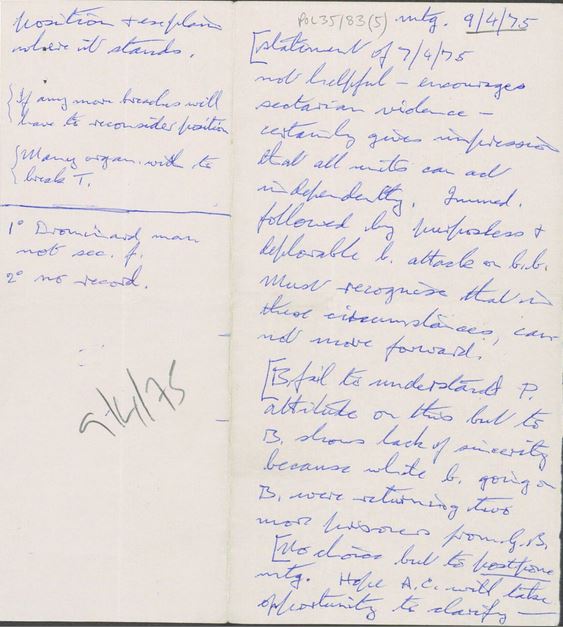 POL35/83(5) mtg. 9/4/75
[statement of 7/4/75
not helpful – encourages
sectarian violence –
certainly gives impression
that all units can act
independently. Immed.
followed by purposless +
deplorable b. attack on b.b.
Must recognise that in
these circumstances, can
not move forward.
[B fail to understand P.
attitude on this but to
B. shows lack of sincerity
because while b. going on
B. were returning two
more prisoners from G.B.
[No choice but to postpone
mtg. Hope A.C. will take
opportunity to clarify –
position + explain
where it stands.
{If any more breaches will
have to reconsider position
{Many organ. with to
break T.
1° Drominard man
not sec. f.
2° no record.
9/4/75